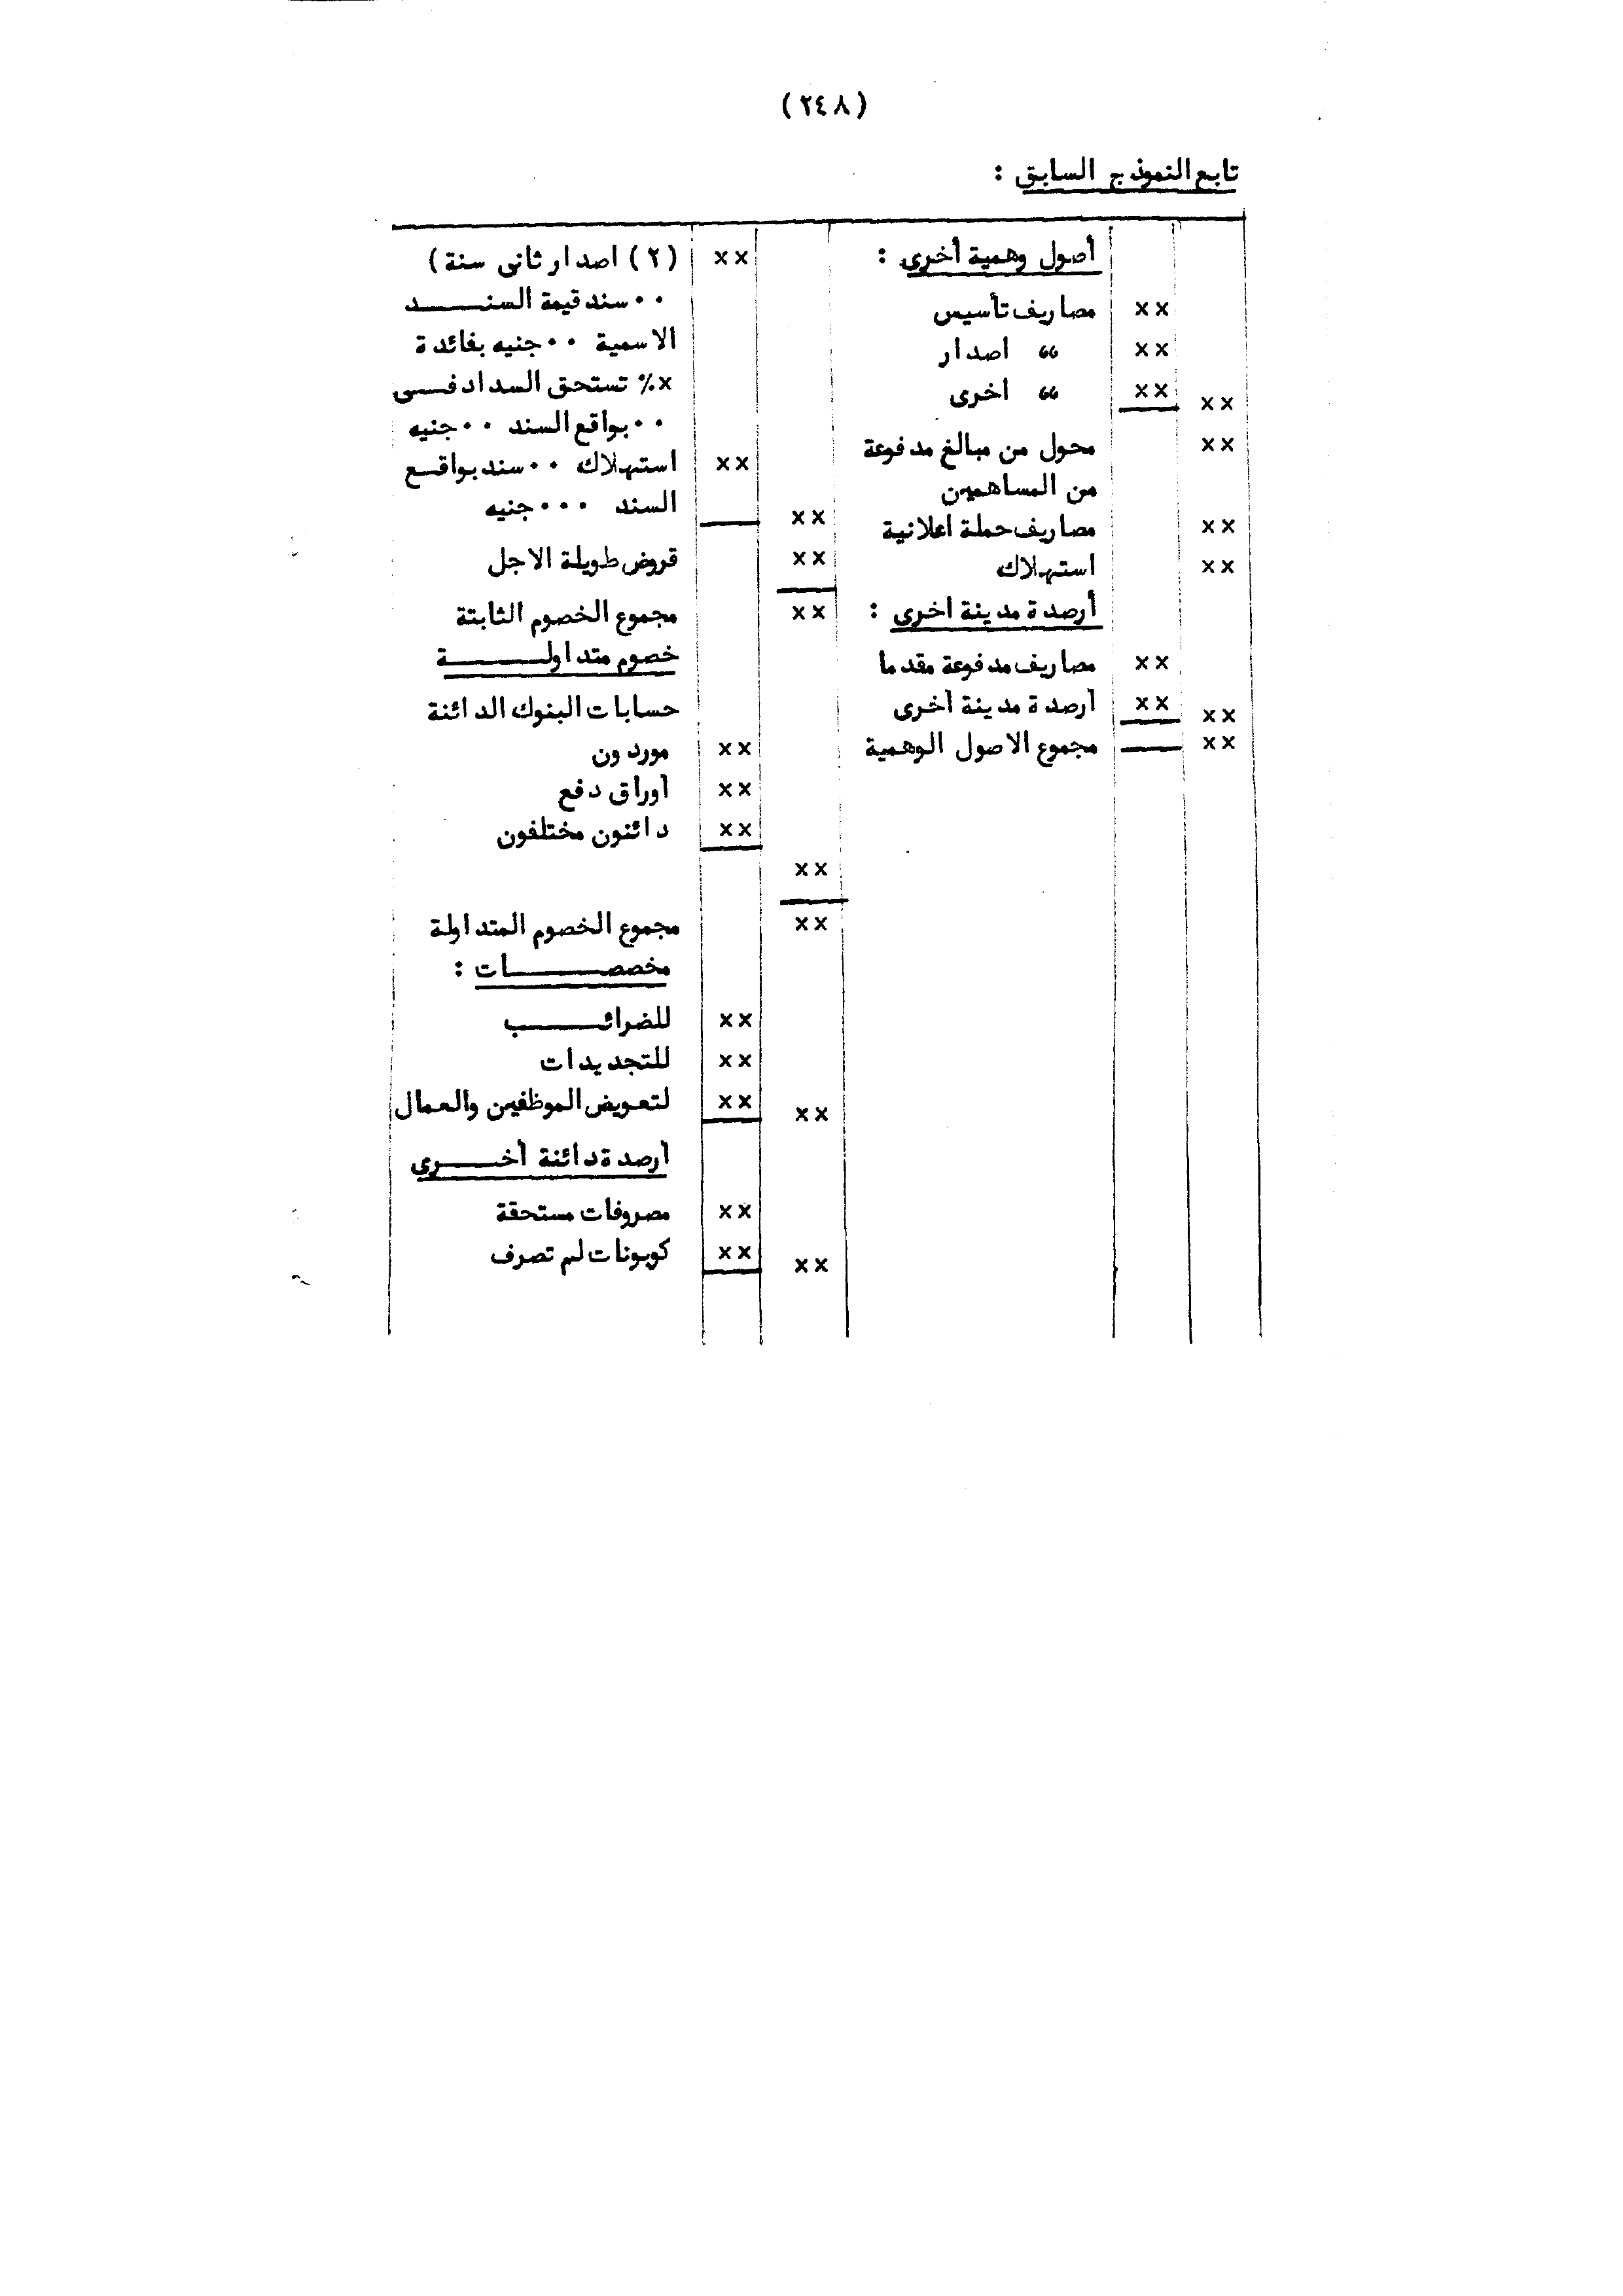 (٢٤٨)
تابع النموذج السابق :
أصول وهمية أخرى :
xx مصاريف تأسيس
xx " اصدار
xx " اخرى
xx
xx محول من مبالغ مدفوعة
من المساهمين
xx مصاريف حملة اعلانية
xx استهلاك
أرصدة مدينة اخرى :
xx مصاريف مدفوعة مقدما
xx أرصدة مدينة أخرى
xx
xx مجموع الاصول الوهمية
xx (٢) اصدار ثانى سنة)
٠٠ سند قيمة السنــــد
الاسمية ٠٠ جنيه بفائدة
x٪ تستحق السداد فــى
٠٠ بواقع السند ٠٠ جنيه
xx استهلاك ٠٠ سند بواقــع
السند ٠٠٠ جنيه
xx
xx قروض طويلة الاجل
xx مجموع الخصوم الثابتة
خصوم متداولــــــة
حسابات البنوك الدائنة
xx موردون
xx أوراق دفع
xx دائنون مختلفون
xx
xx مجموع الخصوم المتداولة
مخصصــــــات :
xx للضرائــــــب
xx للتجديدات
xx لتعويض الموظفين والعمال
xx
أرصدة دائنة أخــــرى
xx مصروفات مستحقة
xx كوبونات لم تصرف
xx